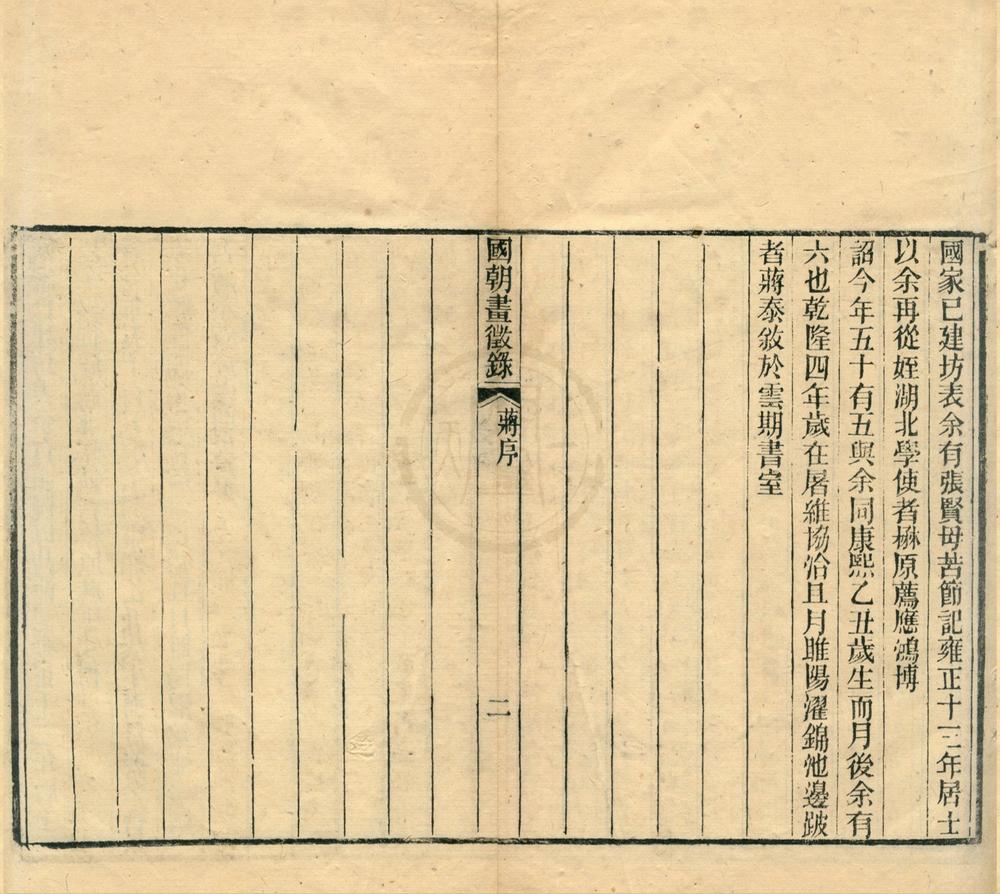 國家已建坊表余有張賢母苦節記雍正十三年居士
以余再從姪湖北學使者楙原薦應鴻博
詔今年五十有五與余同康熙乙丑歲生而月後余有
六也乾隆四年歲在屠維協洽且月睢陽濯錦池邊跛
者蔣泰敘於雲期書室
國朝畫徵錄
蔣序
二